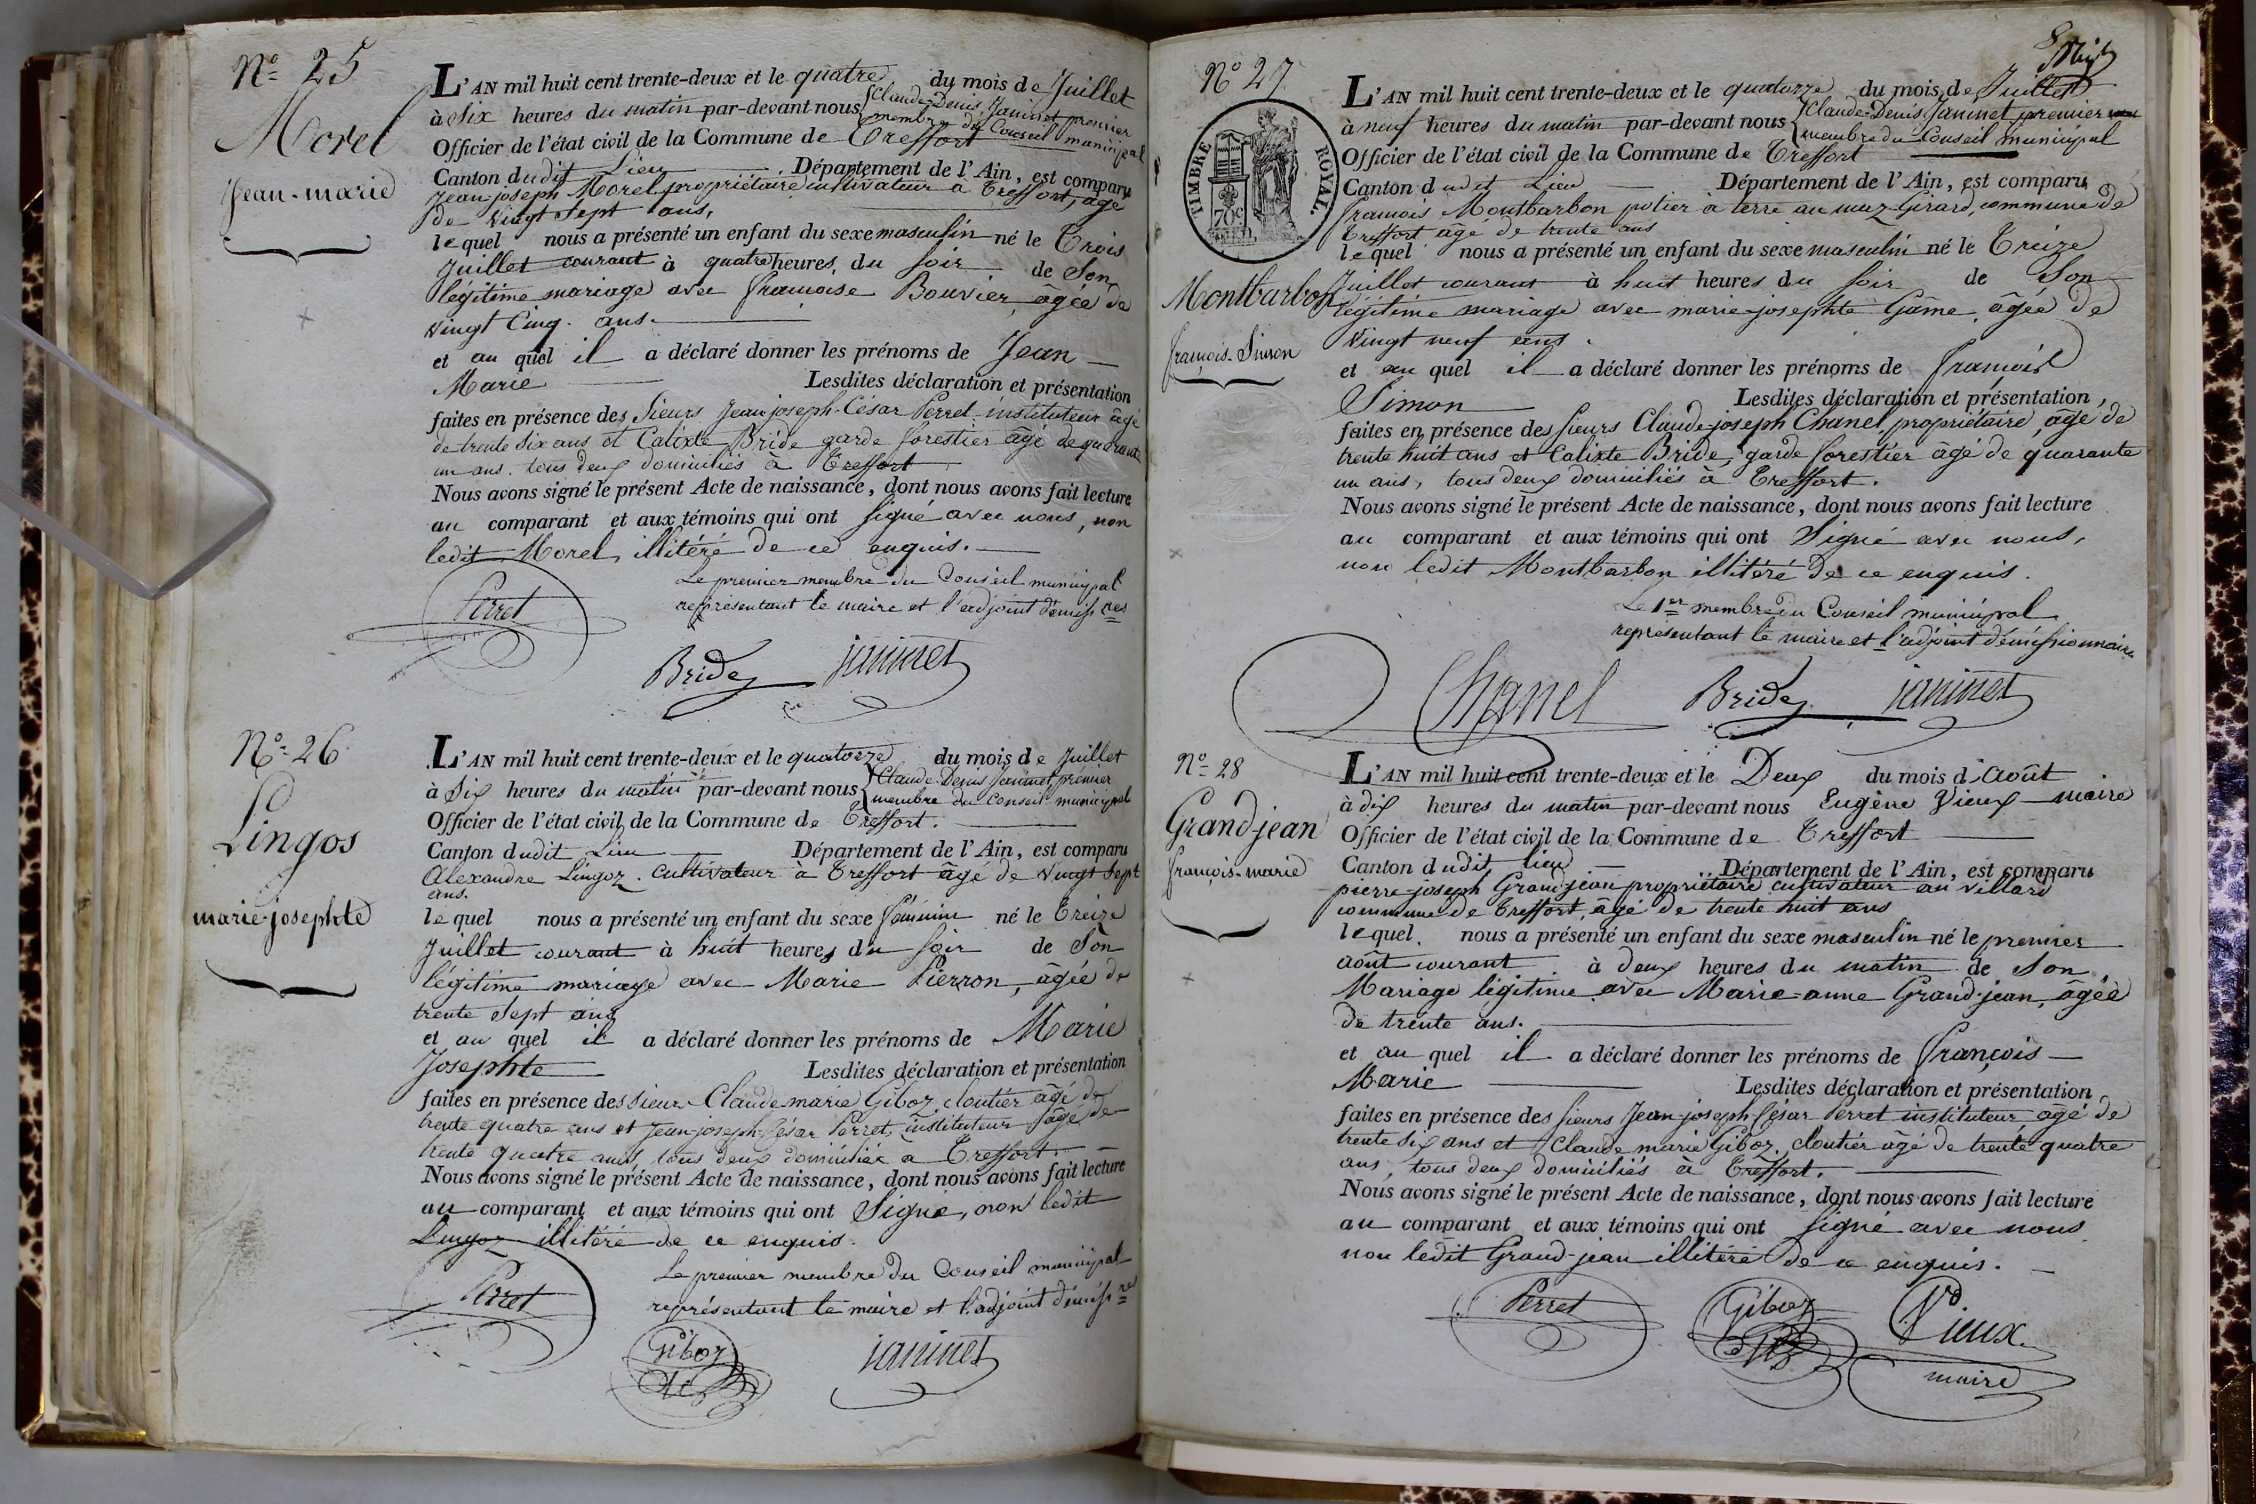 N.o 25
Morel
Jean-marie
L'AN mil huit cent trente-deux et le quatre du mois de Juillet
à Six heures du matin par-devant nous Claude-Denis Janinet premier
membre du Conseil municipal
Officier de l'état civil de la Commune de Treffort
Canton dudit Lieu Département de l'Ain, est comparu
Jean-joseph Morel propriétaire cultivateur a Treffort, âgé
de vingt sept ans,
lequel nous a présenté un enfant du sexe masculin né le Trois
Juillet courant à quatre heures du soir de Son
légitime mariage avec francoise Bouvier, âgée de
vingt Cinq ans.
et au quel il a déclaré donner les prénoms de Jean
Marie Lesdites déclaration et présentation
faites en présence des Sieurs Jean-joseph-César Perret instituteur âgé
de trente six ans et Calixte Bride garde forestier âgé de quarante
un ans, tous deux domiciliés à Treffort
Nous avons signé le présent Acte de naissance, dont nous avons fait lecture
au comparant et aux témoins qui ont signé avec nous, non
ledit Morel, illitéré de ce enquis.
Le premier membre du Conseil municipal
représentant le maire et l'adjoint démiss.res
Perret
Bride janinet
N.o 26
Lingos
marie-josephte
L'AN mil huit cent trente-deux et le quatorze du mois de Juillet
à Six heures du matin par-devant nous Claude-Denis Janinet, premier
membre du Conseil municipal
Officier de l'état civil de la Commune de Treffort.
Canton dudit Lieu Département de l'Ain, est comparu
Alexandre Lingoz, cultivateur à Treffort âgé de vingt sept
ans.
lequel nous a présenté un enfant du sexe féminin né le Treize
Juillet courant à huit heures du soir de Son
légitime mariage avec Marie Pierron, âgée de
trente sept ans
et au quel il a déclaré donner les prénoms de Marie
Josephte Lesdites déclaration et présentation
faites en présence des sieurs Claude marie Giboz cloutier âgé de
trente quatre ans et Jean-joseph-César Perret, instituteur âgé de
trente quatre ans, tous deux domiciliés a Treffort.
Nous avons signé le présent Acte de naissance, dont nous avons fait lecture
au comparant et aux témoins qui ont Signé, non ledit
Lingoz illitéré de ce enquis.
Le premier membre du Conseil municipal
représentant le maire et l'adjoint démiss.res
Perret
Giboz janinet
8
N.o 27
TIMBRE ROYAL.
70c
Montbarbon
françois-Simon
L'AN mil huit cent trente-deux et le quatorze du mois de Juillet
à neuf heures du matin par-devant nous Claude-Denis Janinet premier
membre du Conseil municipal
Officier de l'état civil de la Commune de Treffort
Canton dudit Lieu Département de l'Ain, est comparu
francois Montbarbon potier a terre au muz-Girard, commune de
Treffort âgé de trente ans
lequel nous a présenté un enfant du sexe masculin né le Treize
Juillet courant à huit heures du soir de Son
légitime mariage avec marie-josephte Gâme, âgée de
vingt neuf ans.
et au quel il a déclaré donner les prénoms de francois
Simon Lesdites déclaration et présentation,
faites en présence des sieurs Claude-joseph Chanel, propriétaire, âgé de
trente huit ans et Calixte Bride, garde forestier âgé de quarante
un ans, tous deux domiciliés à Treffort.
Nous avons signé le présent Acte de naissance, dont nous avons fait lecture
au comparant et aux témoins qui ont Signé avec nous,
non ledit Montbarbon illitéré de ce enquis.
Le 1.er membre du Conseil municipal
représentant le maire et l'adjoint démissionnaires
Chanel Bride janinet
N.o 28
Grand-jean
françois-marie
L'AN mil huit cent trente-deux et le Deux du mois d'Août
à dix heures du matin par-devant nous Eugène Vieux maire
Officier de l'état civil de la Commune de Treffort
Canton dudit lieu Département de l'Ain, est comparu
pierre-joseph Grand-jean propriétaire cultivateur au villard
commune de Treffort, âgé de trente huit ans
lequel nous a présenté un enfant du sexe masculin né le premier
août courant à deux heures du matin de Son
Mariage légitime avec Marie-anne Grand-jean, âgée
de trente ans.
et au quel il a déclaré donner les prénoms de françois
Marie Lesdites déclaration et présentation
faites en présence des sieurs Jean-joseph-César Perret instituteur âgé de
trente six ans et Claude marie Giboz, cloutier âgé de trente quatre
ans, tous deux domiciliés à Treffort.
Nous avons signé le présent Acte de naissance, dont nous avons fait lecture
au comparant et aux témoins qui ont signé avec nous
non ledit Grand-jean illitéré de ce enquis.
Perret Giboz Vieux
maire